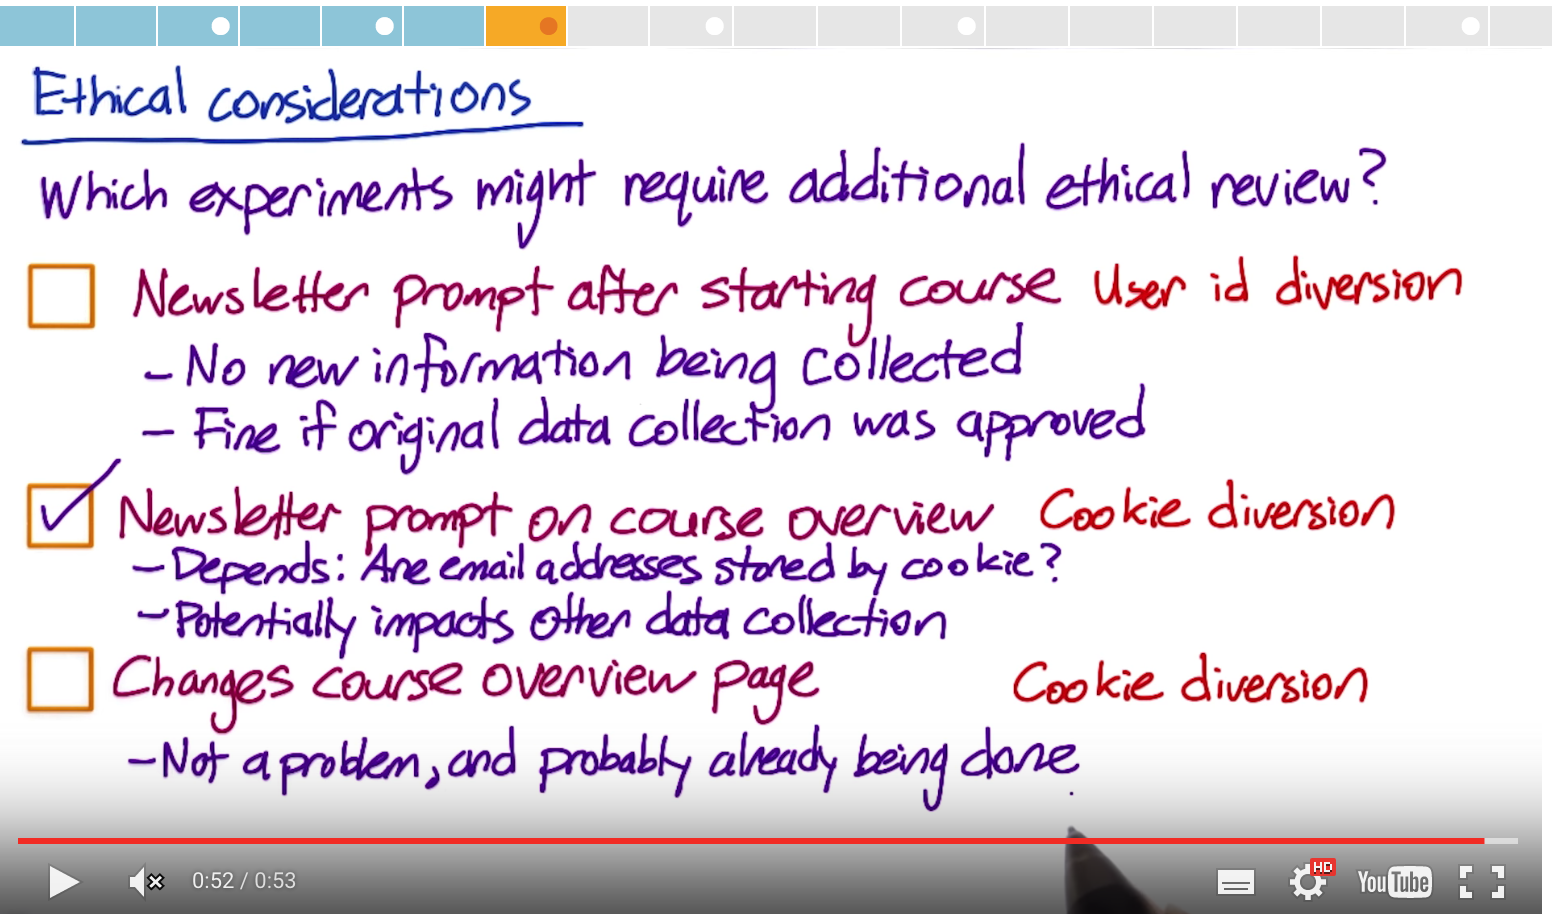 Ethical considerations
Which experiments might require additional ethical review?
Newsletter prompt after starting course User id diversion
- No new information being collected
- Fine if original data collection was approved
Newsletter prompt on course overview Cookie diversion
- Depends: Are email addresses stored by cookie?
- Potentially impacts other data collection
Changes course overview page Cookie diversion
- Not a problem, and probably already being done.
0:52 / 0:53
HD
YouTube